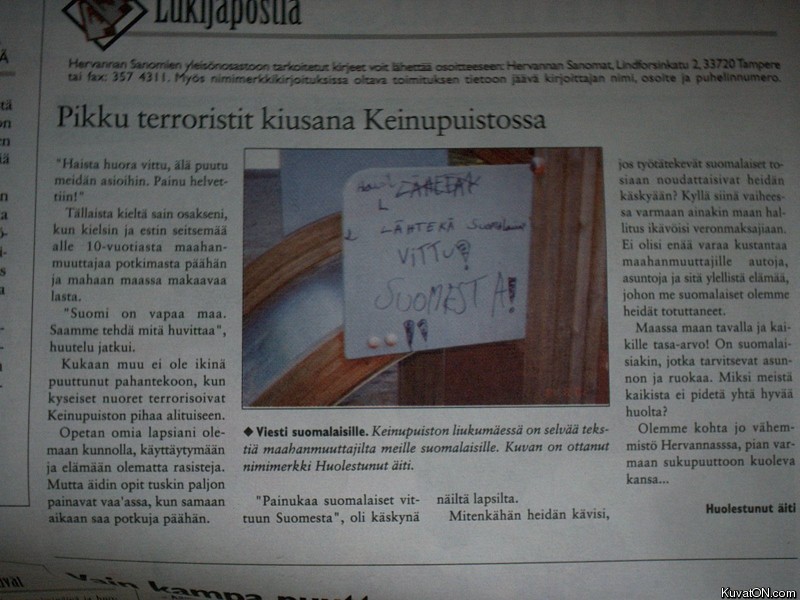 Lukijapostia
Hervannan Sanomien yleisönosastoon tarkoitetut kirjeet voit lähettää osoitteeseen: Hervannan Sanomat, Lindforsinkatu 2, 33720 Tampere
tai fax: 357 4311. Myös nimimerkkikirjoituksissa oltava toimituksen tietoon jäävä kirjoittajan nimi, osoite ja puhelinnumero.
Pikku terroristit kiusana Keinupuistossa
"Haista huora vittu, älä puutu
meidän asioihin. Painu helvet-
tiin!"
Tällaista kieltä sain osakseni,
kun kielsin ja estin seitsemää
alle 10-vuotiasta maahan-
muuttajaa potkimasta päähän
ja mahaan maassa makaavaa
lasta.
"Suomi on vapaa maa.
Saamme tehdä mitä huvittaa",
huutelu jatkui.
Kukaan muu ei ole ikinä
puuttunut pahantekoon, kun
kyseiset nuoret terrorisoivat
Keinupuiston pihaa alituiseen.
Opetan omia lapsiani ole-
maan kunnolla, käyttäytymään
ja elämään olematta rasisteja.
Mutta äidin opit tuskin paljon
painavat vaa'assa, kun samaan
aikaan saa potkuja päähän.
LÄHTEKÄ SUOMALAISET
VITTU?
SUOMESTA!
!!
◆ Viesti suomalaisille. Keinupuiston liukumäessä on selvää teks-
tiä maahanmuuttajilta meille suomalaisille. Kuvan on ottanut
nimimerkki Huolestunut äiti.
"Painukaa suomalaiset vit-
tuun Suomesta", oli käskynä
näiltä lapsilta.
Mitenkähän heidän kävisi,
jos työtätekevät suomalaiset to-
siaan noudattaisivat heidän
käskyään? Kyllä siinä vaihees-
sa varmaan ainakin maan hal-
litus ikävöisi veronmaksajiaan.
Ei olisi enää varaa kustantaa
maahanmuuttajille autoja,
asuntoja ja sitä ylellistä elämää,
johon me suomalaiset olemme
heidät totuttaneet.
Maassa maan tavalla ja kai-
kille tasa-arvo! On suomalai-
siakin, jotka tarvitsevat asun-
non ja ruokaa. Miksi meistä
kaikista ei pidetä yhtä hyvää
huolta?
Olemme kohta jo vähem-
mistö Hervannasssa, pian var-
maan sukupuuttoon kuoleva
kansa...
Huolestunut äiti
Vain kampa
KuvatON.com